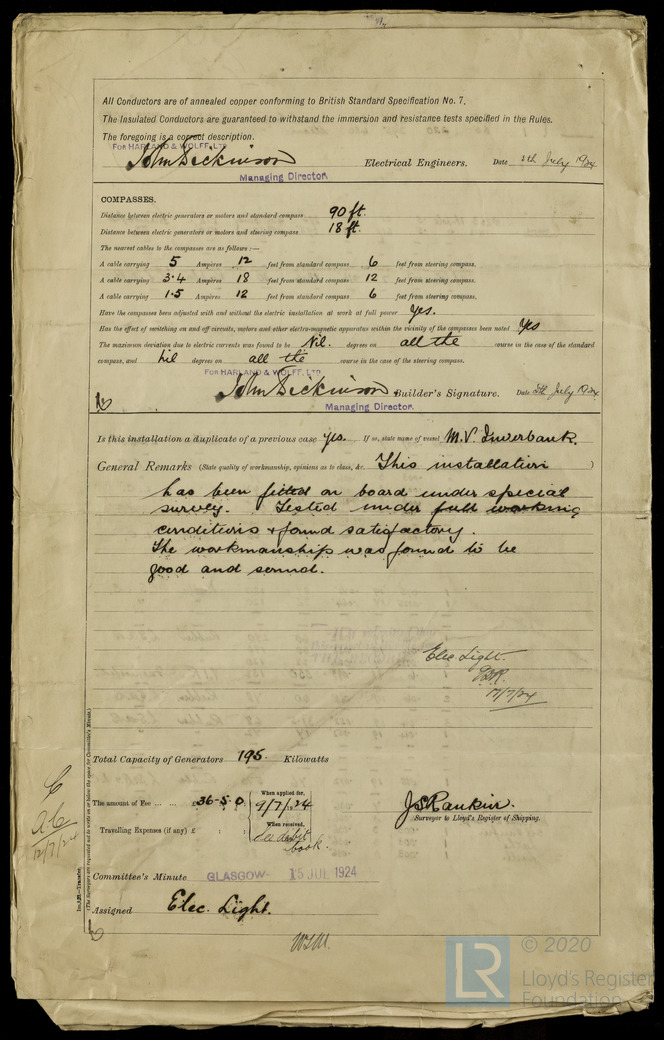 All Conductors are of annealed copper conforming to British Standard Specification No. 7.
The Insulated Conductors are guaranteed to withstand the immersion and resistance tests specified in the Rules.
The foregoing is a correct description.
FOR HARLAND & WOLFF, LTD
John Dickinson Electrical Engineers. Date 5th July 1924
Managing Director.
COMPASSES.
Distance between electric generators or motors and standard compass 90 ft.
Distance between electric generators or motors and steering compass 18 ft.
The nearest cables to the compasses are as follows:—
A cable carrying 5 Ampères 12 feet from standard compass 6 feet from steering compass.
A cable carrying 3.4 Ampères 18 feet from standard compass 12 feet from steering compass.
A cable carrying 1.5 Ampères 12 feet from standard compass 6 feet from steering compass.
Have the compasses been adjusted with and without the electric installation at work at full power Yes.
Has the effect of switching on and off circuits, motors and other electro-magnetic apparatus within the vicinity of the compasses been noted Yes
The maximum deviation due to electric currents was found to be Nil. degrees on all the course in the case of the standard
compass, and nil degrees on all the course in the case of the steering compass.
FOR HARLAND & WOLFF, LTD
John Dickinson Builder's Signature. Date 5th July 1924
Managing Director.
Is this installation a duplicate of a previous case Yes. If so, state name of vessel M.V. Inverbank.
General Remarks (State quality of workmanship, opinions as to class, &c. This installation )
has been fitted on board under special
survey. Tested under full working
conditions & found satisfactory.
The workmanship was found to be
good and sound.
Elec. Light.
17/7/24
Total Capacity of Generators 195 Kilowatts
The amount of Fee ... ... £ 36 : 5 : 0 : When applied for, 9/7/1924
When received,
Travelling Expenses (if any) £ : : See debit book.
J S Rankin.
Surveyor to Lloyd's Register of Shipping.
Committee's Minute GLASGOW 15 JUL 1924
Assigned Elec. Light.
(The Surveyors are requested not to write on or below the space for Committee's Minute.)
12/7/24
© 2020
Lloyd's Register
Foundation
LR